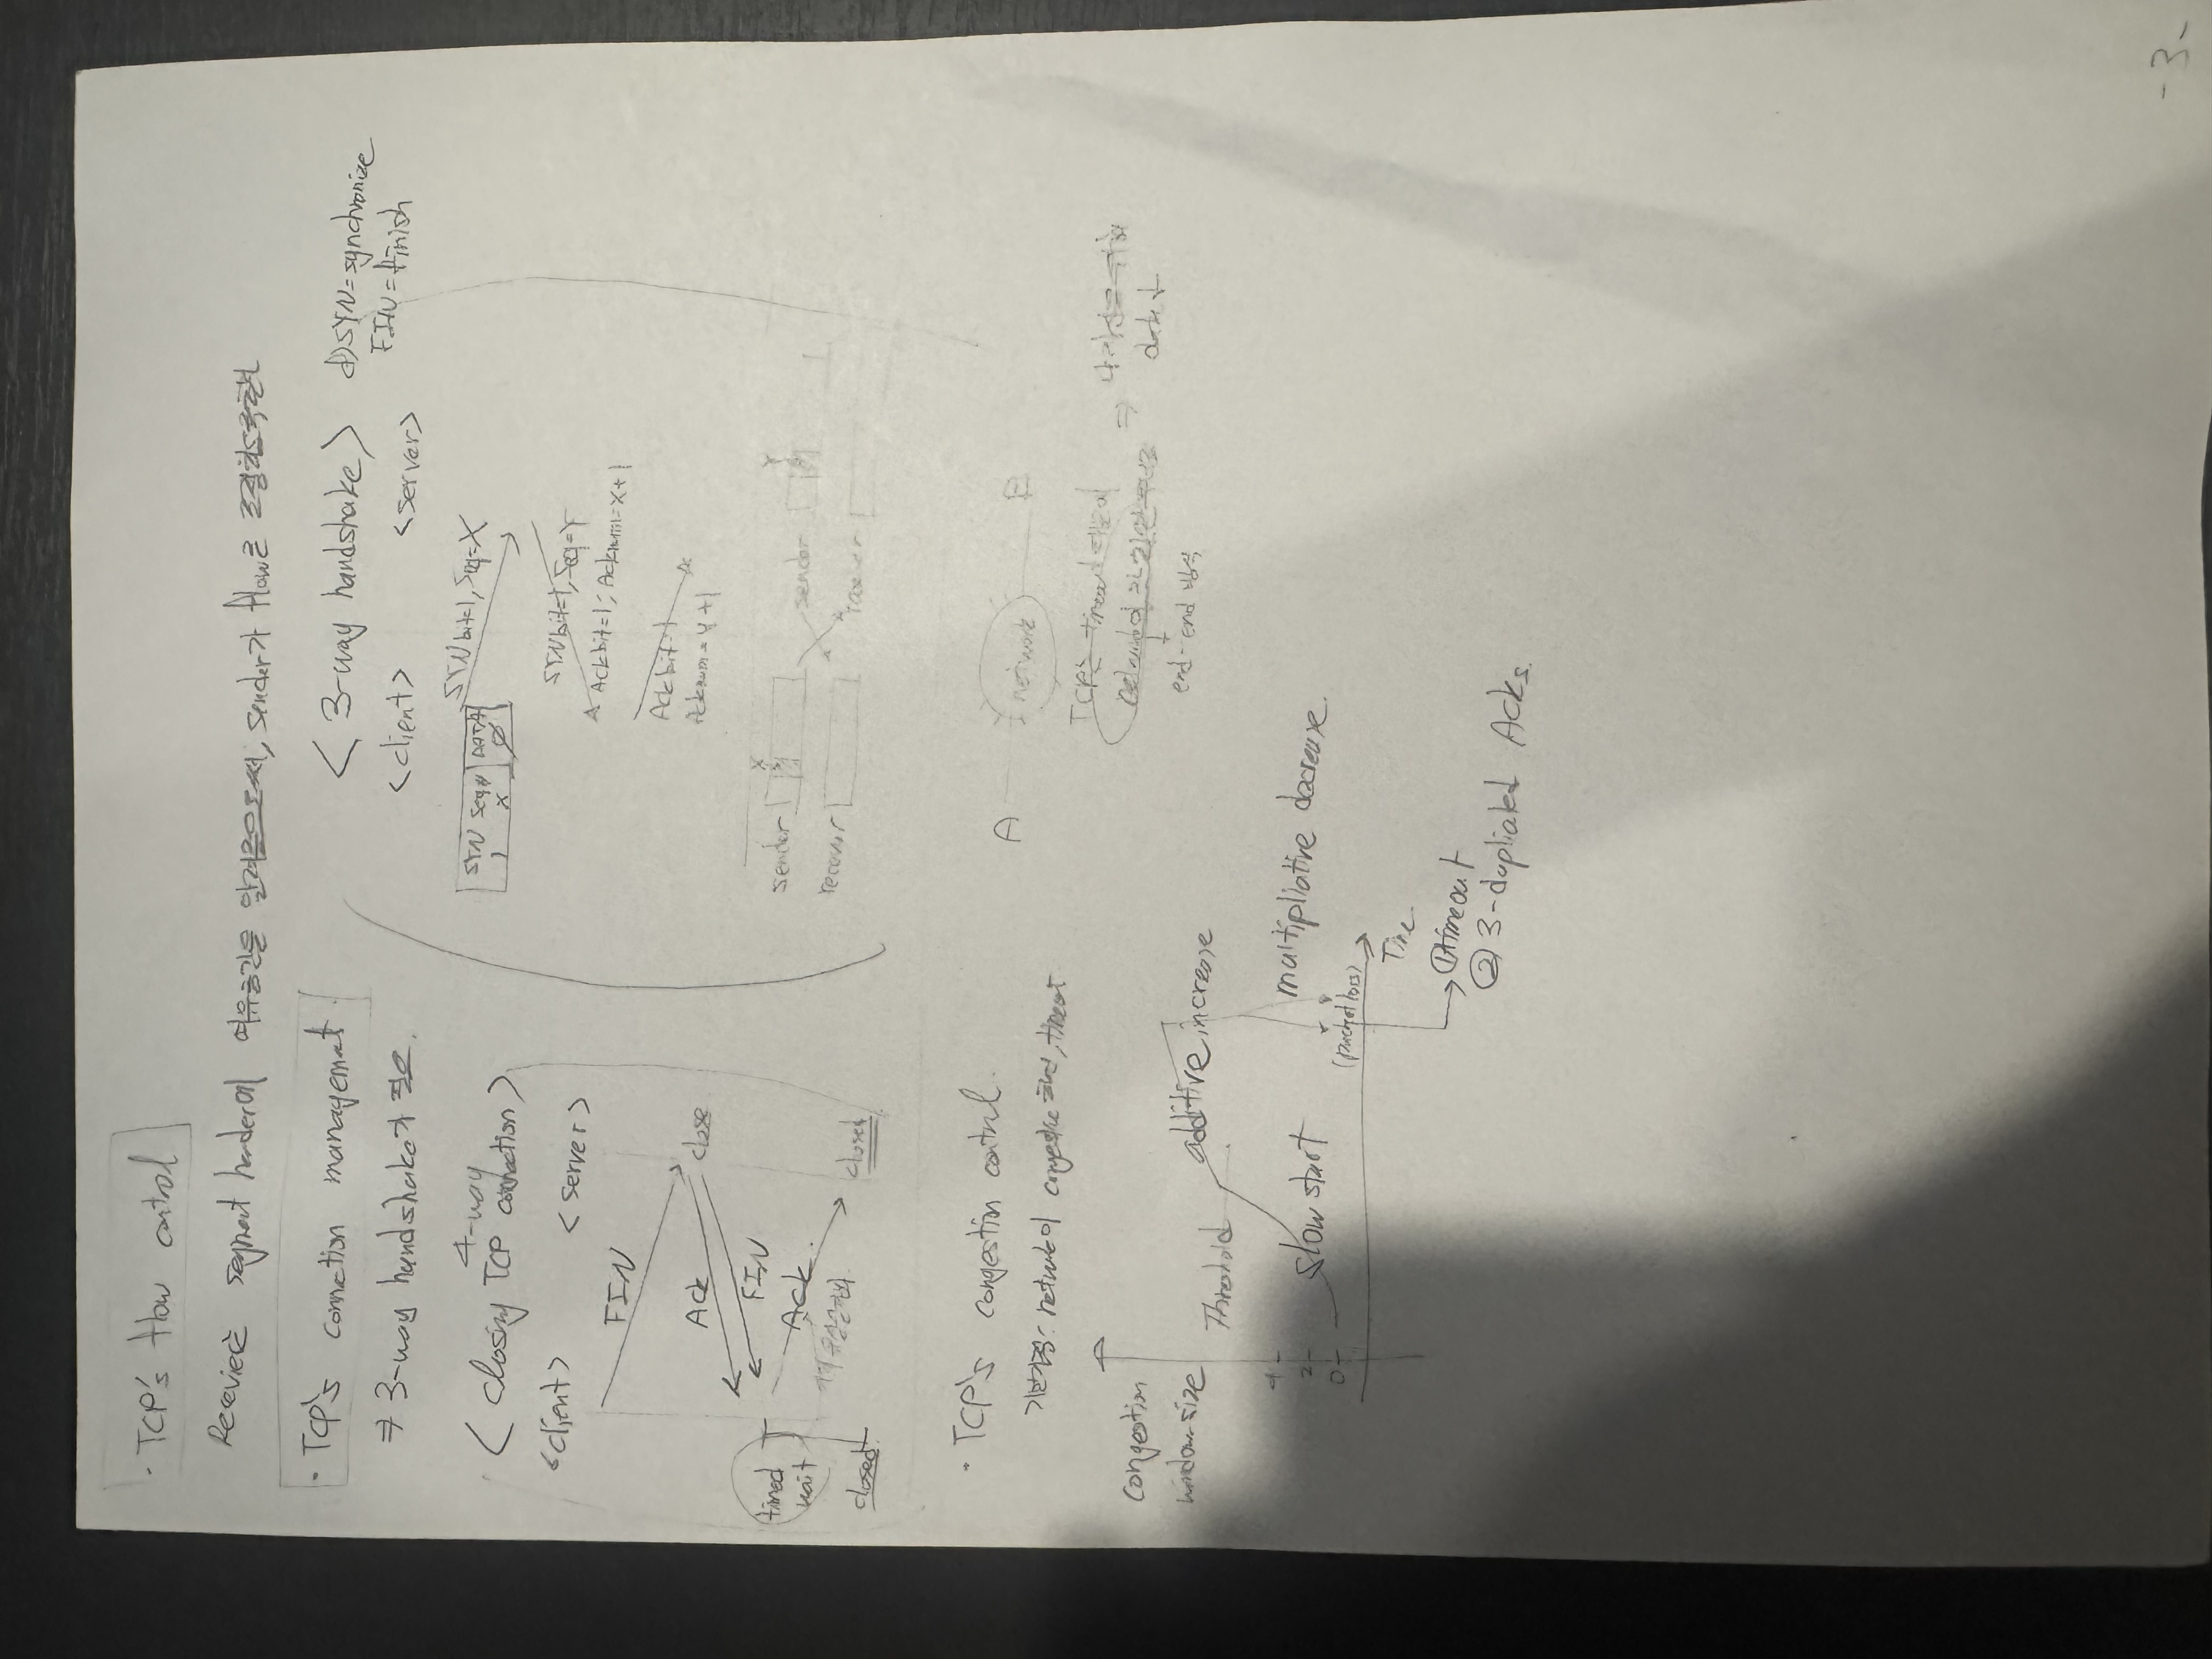 · TCP's flow control
Receiver는 segment header에 여유공간을 알려줌으로써, sender가 flow를 조절하도록함
· TCP's connection management
⇒ 3-way handshake가 필요.
4-way
< closing TCP connection >
<client>
<server>
FIN
Ack
close
FIN
timed
wait
Ack.
closed
closed
< 3-way handshake >
SYN=synchronize
FIN=finish
<client>
<server>
SYN Seq# DATA
1 x ∅
SYNbit=1, Seq=X
SYNbit=1, Seq=Y
Ackbit=1; Acknum=X+1
Ackbit=1
Acknum=y+1
sender
X
receiver
sender
Y
· TCP's congestion control.
network이 congestion
A
network
B
TCP는
end-end 방식
congestion
window size
Threshold
additive increase
4
2
0
slow start
multipliative decrease.
(packet loss)
Time
① timeout
② 3-dupliated Acks.
-3-